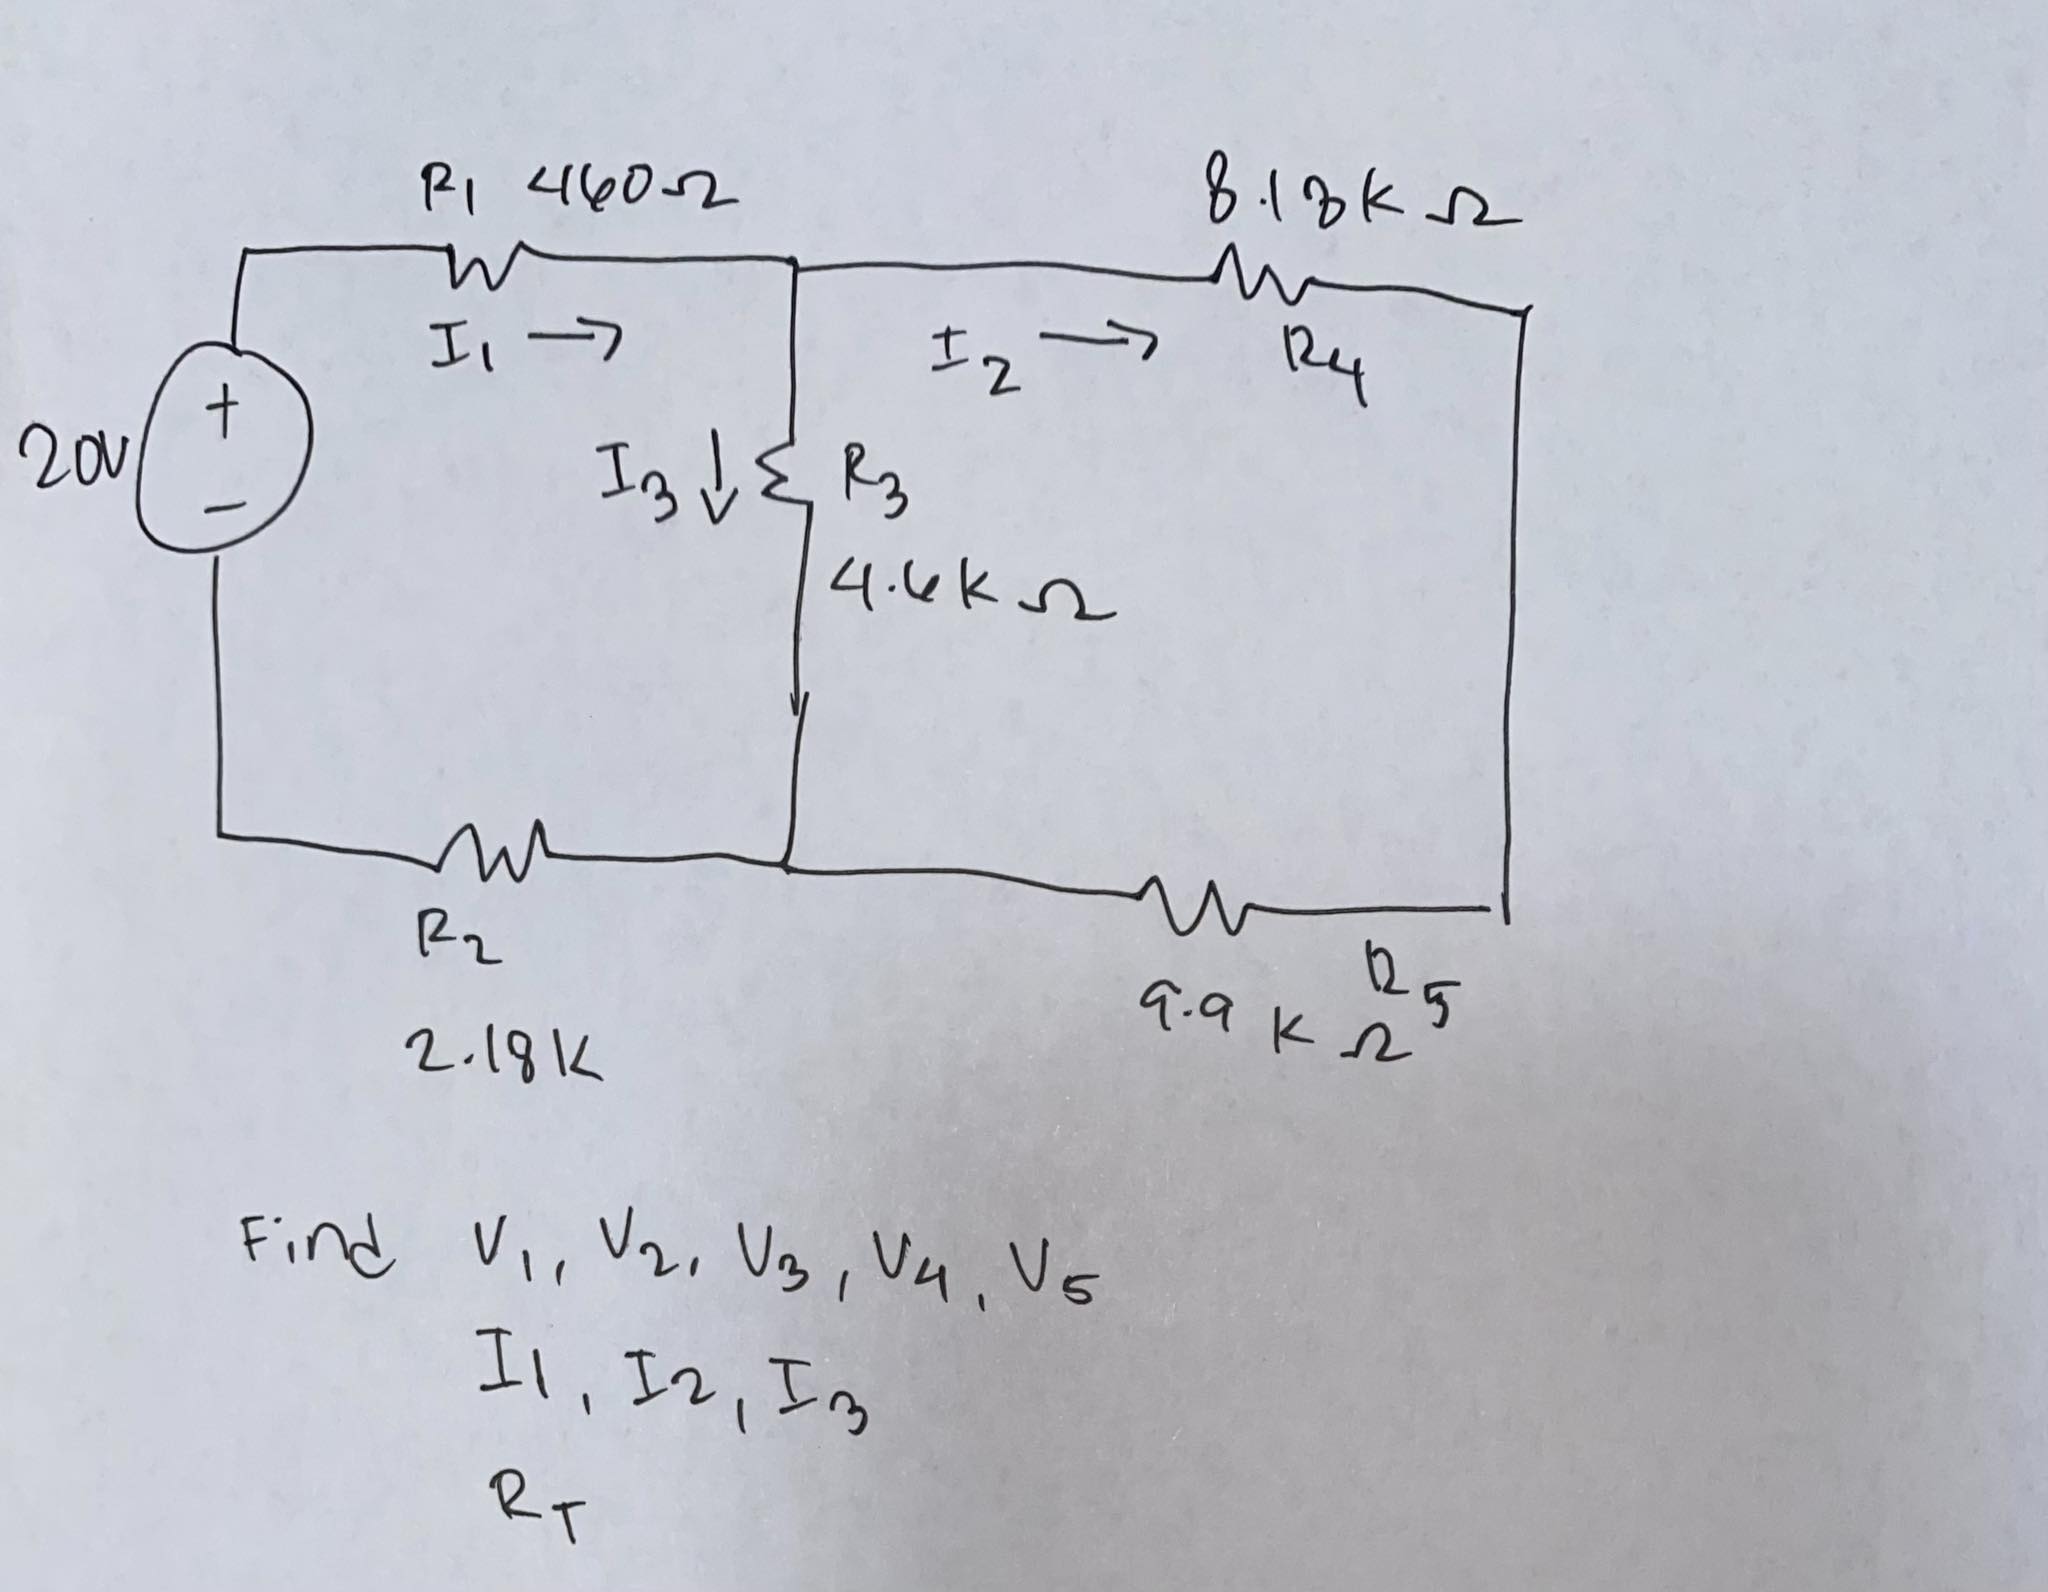 R1 460Ω
8.18kΩ
I1 →
I2 →
R4
20V
+
-
I3 ↓
R3
4.6kΩ
R2
2.18K
R5
9.9 KΩ
Find V1, V2, V3, V4, V5
I1, I2, I3
RT